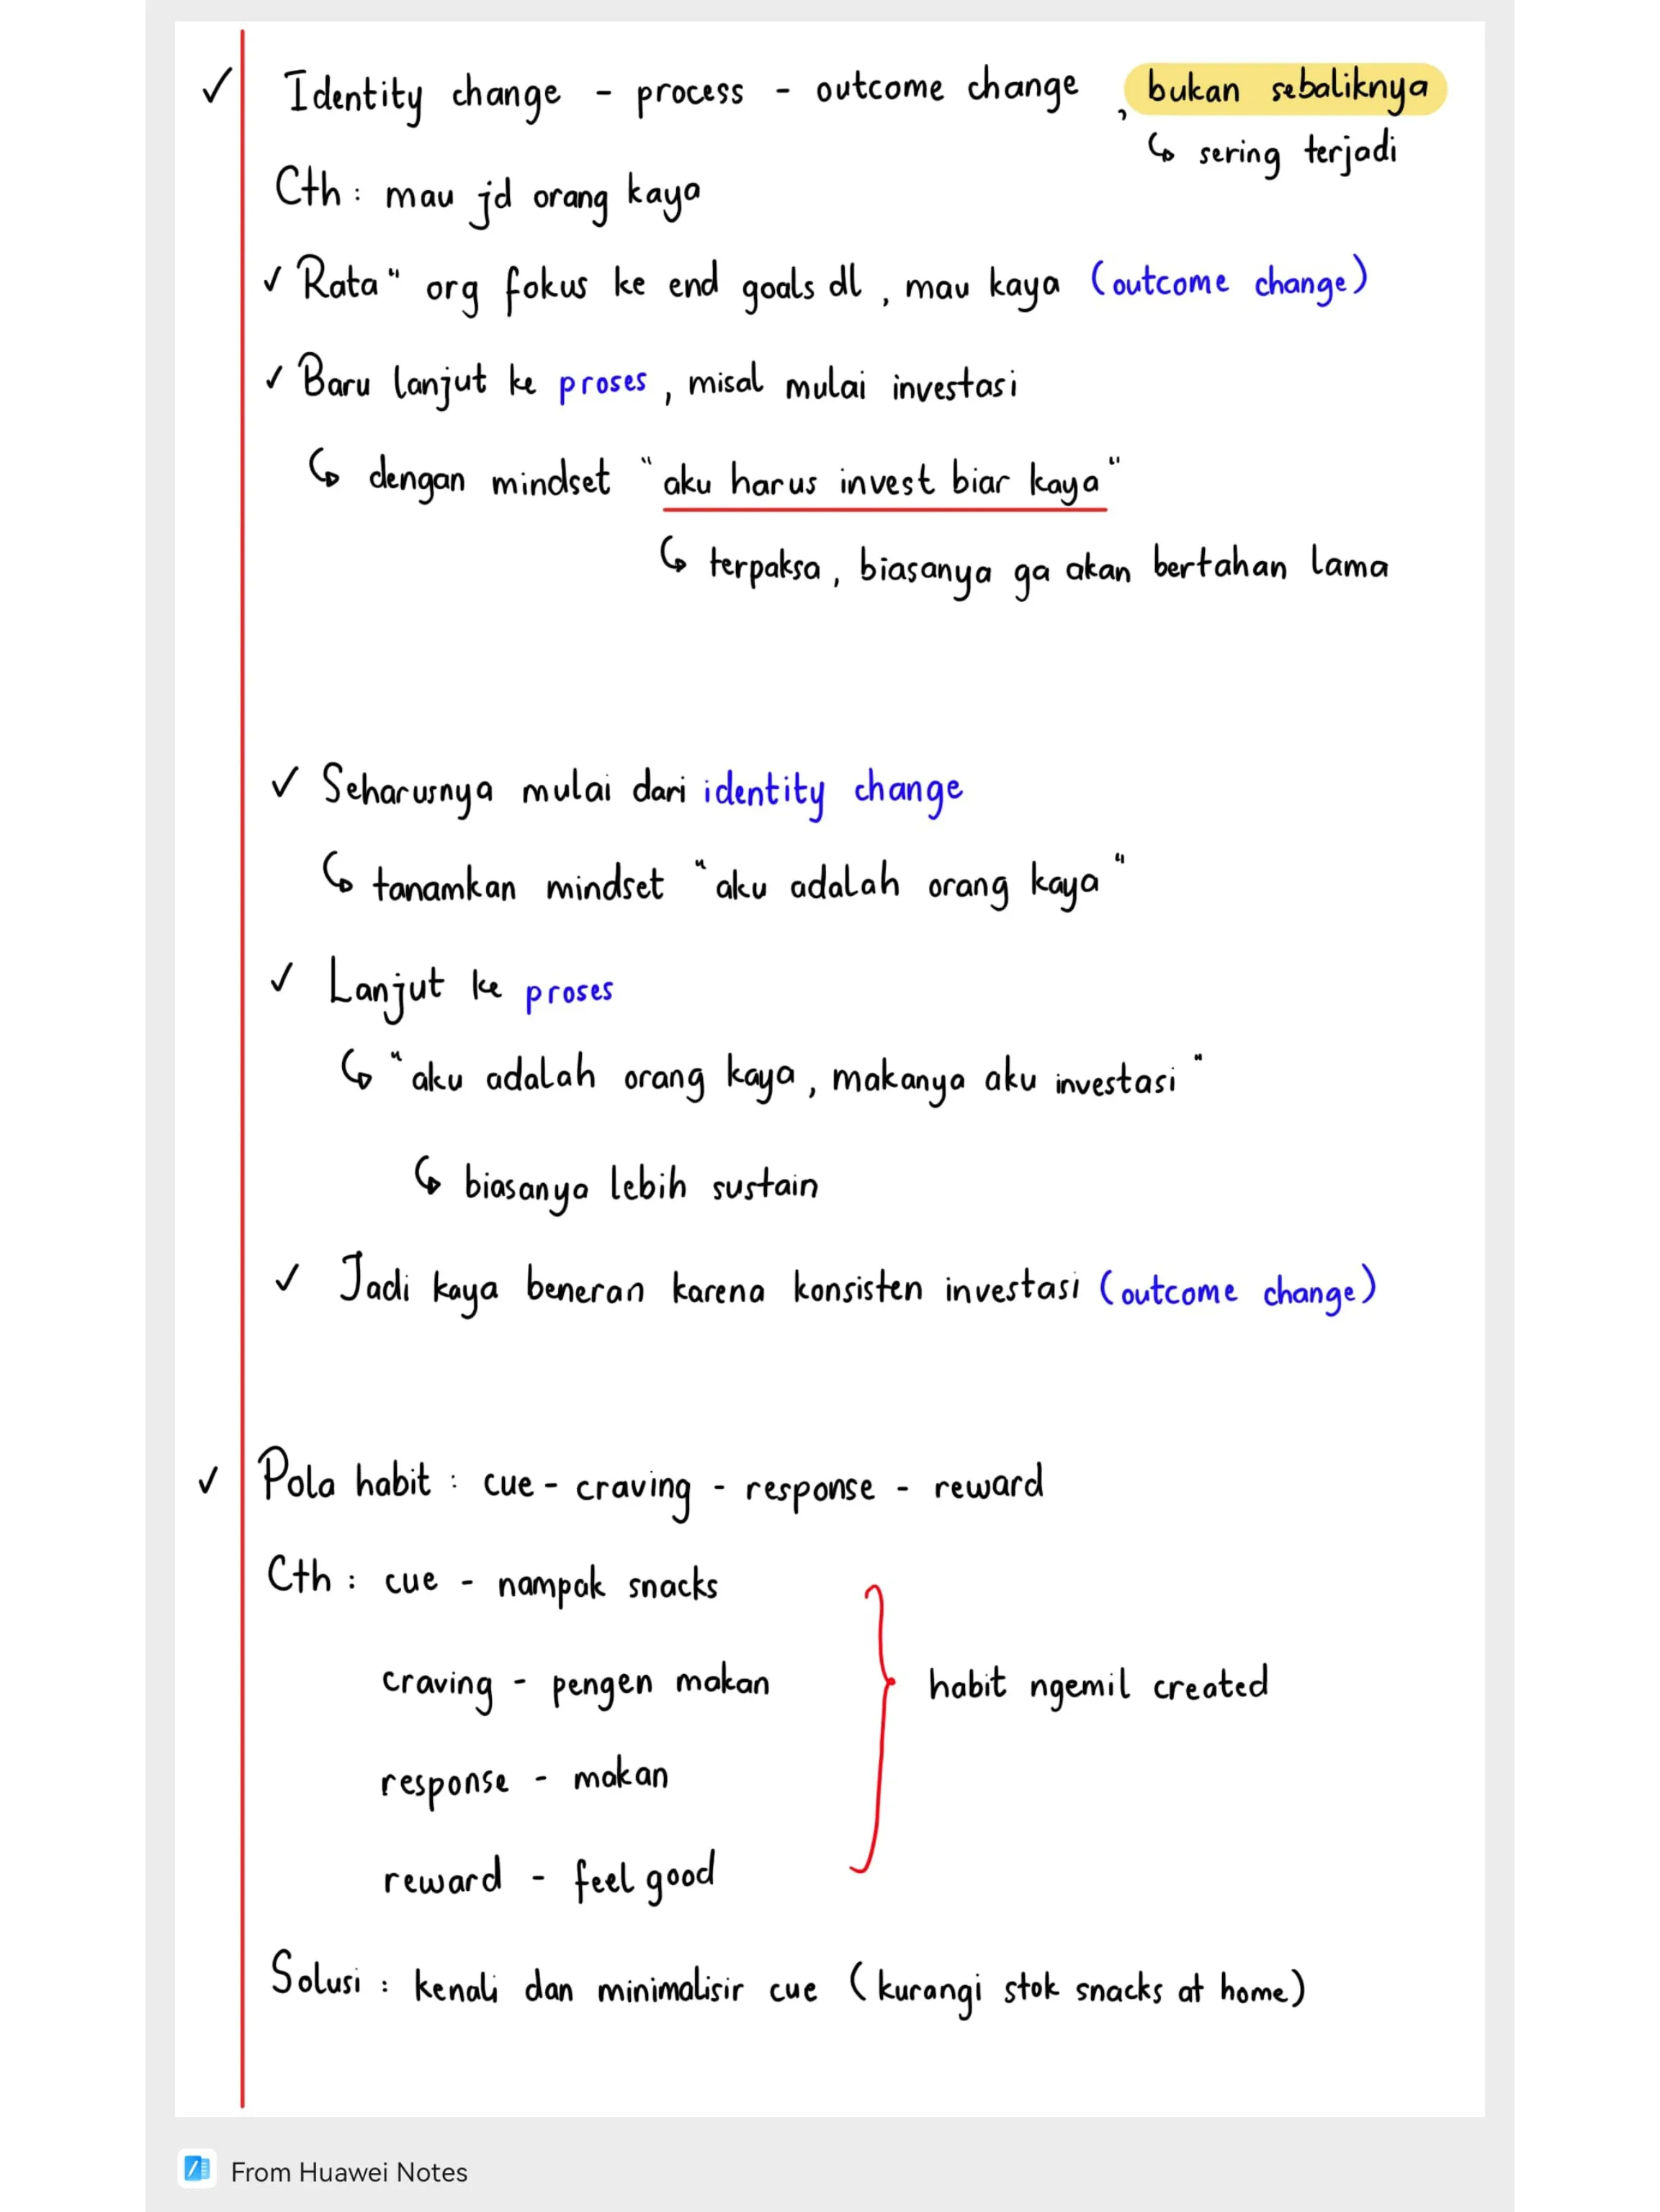 ✓ Identity change - process - outcome change , bukan sebaliknya
↳ sering terjadi
Cth : mau jd orang kaya
✓ Rata" org fokus ke end goals dl , mau kaya (outcome change)
✓ Baru lanjut ke proses , misal mulai investasi
↳ dengan mindset "aku harus invest biar kaya"
↳ terpaksa , biasanya ga akan bertahan lama
✓ Seharusnya mulai dari identity change
↳ tanamkan mindset "aku adalah orang kaya"
✓ Lanjut ke proses
↳ "aku adalah orang kaya , makanya aku investasi"
↳ biasanya lebih sustain
✓ Jadi kaya beneran karena konsisten investasi (outcome change)
✓ Pola habit : cue - craving - response - reward
Cth : cue - nampak snacks
craving - pengen makan
habit ngemil created
response - makan
reward - feel good
Solusi : kenali dan minimalisir cue (kurangi stok snacks at home)
From Huawei Notes